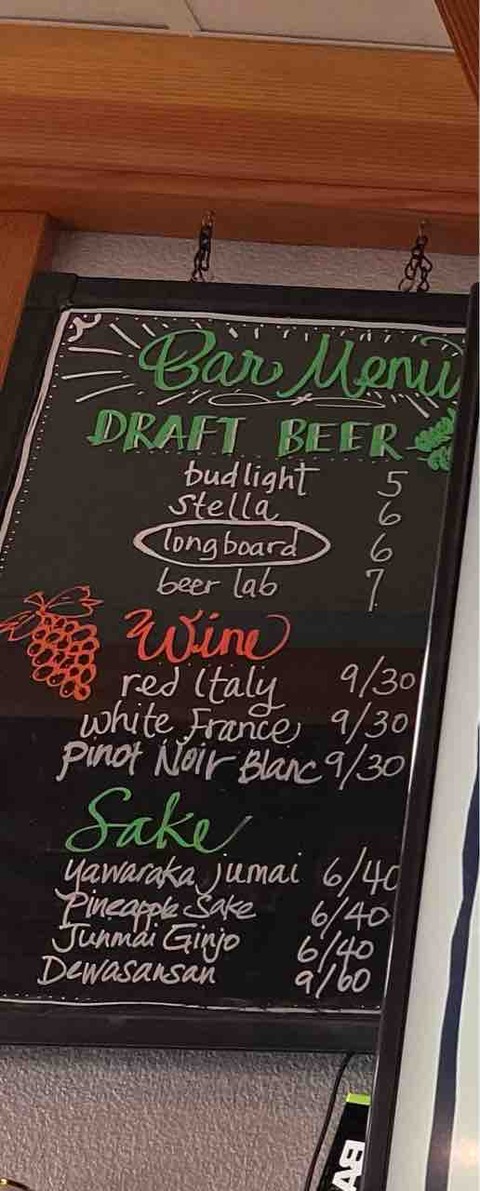 Bar Menu
DRAFT BEER
bud light 5
stella 6
longboard 6
beer lab 7
Wine
red Italy 9/30
white France 9/30
Pinot Noir Blanc 9/30
Sake
yawaraka jumai 6/40
Pineapple Sake 6/40
Junmai Ginjo 6/40
Dewasansan 9/60